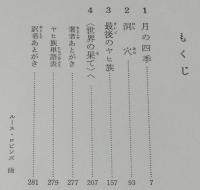 もくじ
1 月の四季 7
2 洞穴 93
3 最後のヤヒ族 157
4 〈世界の果て〉へ 207
著者あとがき 277
ヤヒ族単語表 279
訳者あとがき 281
ルース・ロビンズ 画